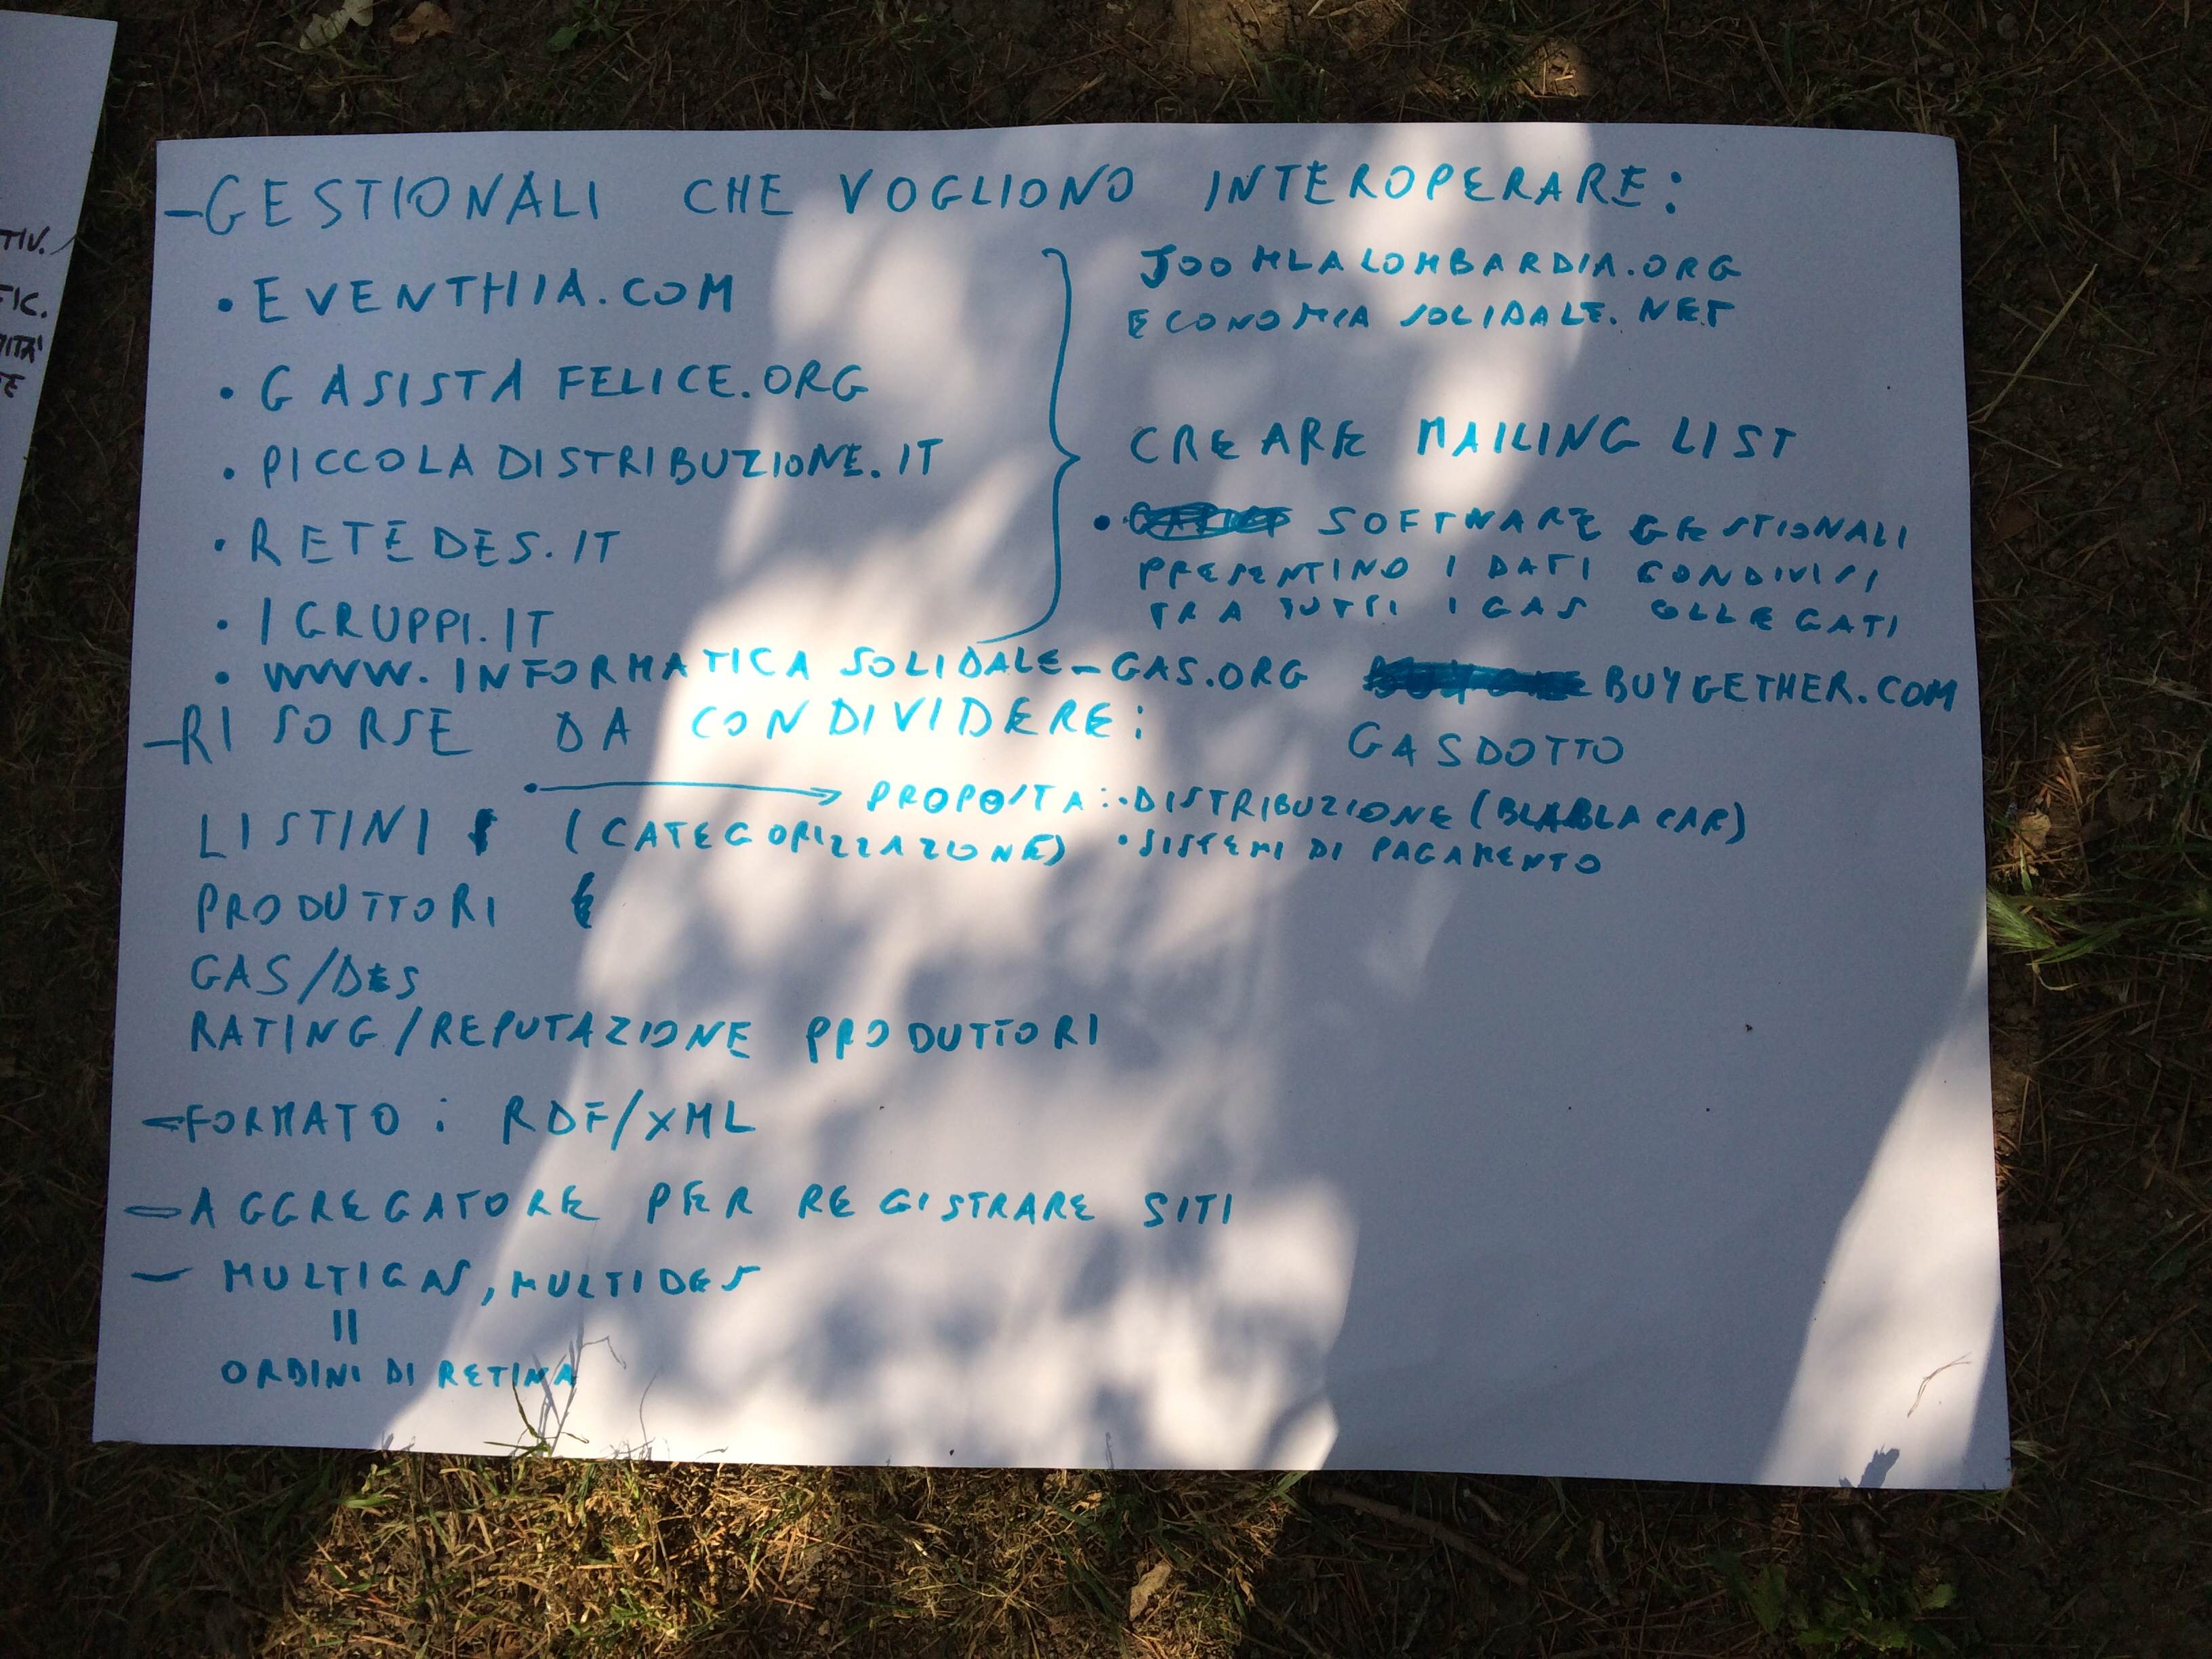 - GESTIONALI CHE VOGLIONO INTEROPERARE:
• EVENTHIA.COM
• GASISTA FELICE.ORG
• PICCOLA DISTRIBUZIONE.IT
• RETEDES.IT
• IGRUPPI.IT
• WWW.INFORMATICA SOLIDALE-GAS.ORG
JOOMLALOMBARDIA.ORG
ECONOMIA SOLIDALE.NET
CREARE MAILING LIST
• SOFTWARE GESTIONALI
PRESENTINO I DATI CONDIVISI
TRA TUTTI I GAS OLLEGATI
BUYGETHER.COM
GASDOTTO
- RISORSE DA CONDIVIDERE:
→ PROPOSTA: • DISTRIBUZIONE (BLABLACAR)
• SISTEMI DI PAGAMENTO
LISTINI (CATEGORIZZAZIONE)
PRODUTTORI
GAS/DES
RATING/REPUTAZIONE PRODUTTORI
- FORMATO: RDF/XML
- AGGREGATORE PER REGISTRARE SITI
- MULTIGAS, MULTIDES
||
ORDINI DI RETINA
TIV.
FIC.
ITÀ